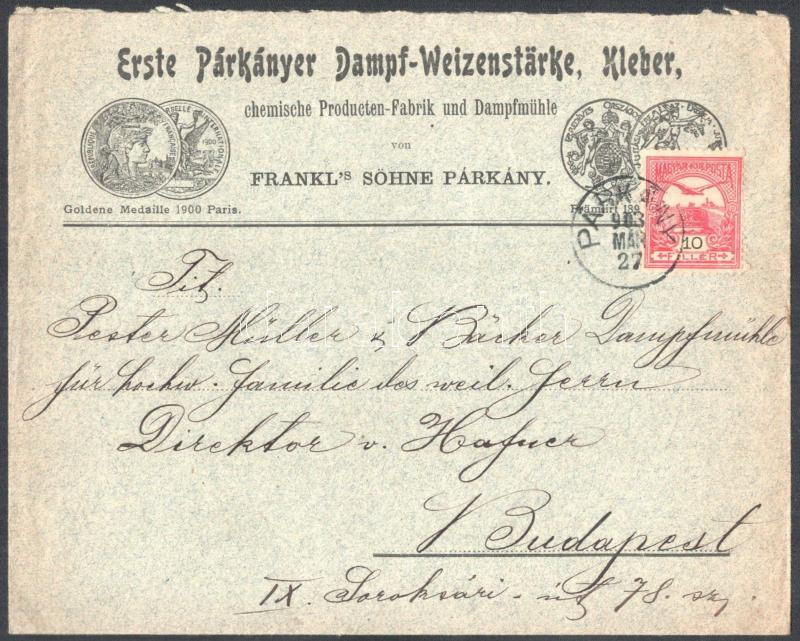 Erste Párkányer Dampf-Weizenstärke, Kleber,
chemische Producten-Fabrik und Dampfmühle
von
FRANKL's SÖHNE PÁRKÁNY.
Goldene Medaille 1900 Paris.
Prämiirt 189
MAGYAR KIR. POSTA
10
FILLÉR
PÁRKÁNY
903
MÁR
27
Tit.
Pester Müller & Bäcker Dampfmühle
für hochw. Familie des weil. Herrn
Direktor v. Hafner
Budapest
IX. Soroksári-út 78. sz.